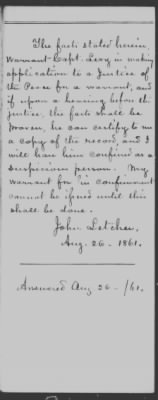 The facts stated herein,
warrant Capt. Levy in making
application to a Justice of
the Peace for a warrant, and
if upon a hearing before the
Justice, the facts shall be
proven, he can certify to me
a copy of the record, and I
will have him confined as a
suspicious person. My
warrant for his confinement
cannot be issued until this
shall be done.
John Letcher,
Aug. 26. 1861.
Answered Aug 26 - /61.